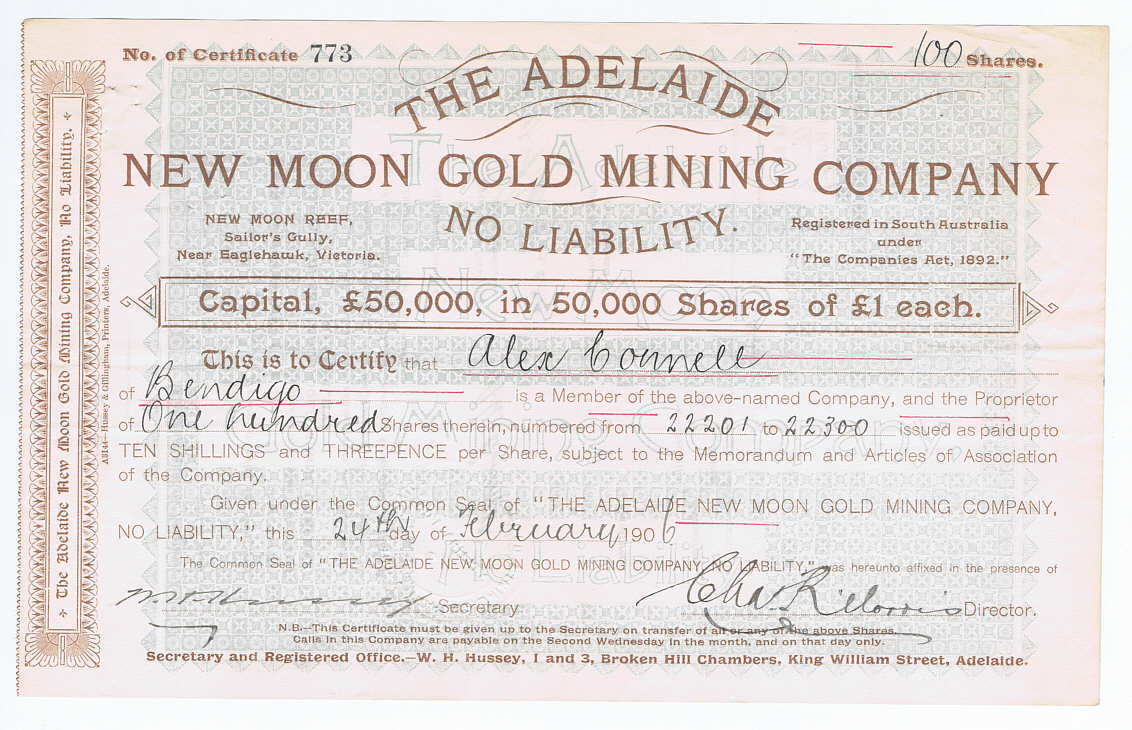 No. of Certificate 773
100 Shares.
THE ADELAIDE
NEW MOON GOLD MINING COMPANY
NO LIABILITY.
NEW MOON REEF,
Sailor's Gully,
Near Eaglehawk, Victoria.
Registered in South Australia
under
"The Companies Act, 1892."
Capital, £50,000, in 50,000 Shares of £1 each.
This is to Certify that Alex Connell
of Bendigo is a Member of the above-named Company, and the Proprietor
of One hundred Shares therein, numbered from 22201 to 22300 issued as paid up to
TEN SHILLINGS and THREEPENCE per Share, subject to the Memorandum and Articles of Association
of the Company.
Given under the Common Seal of "THE ADELAIDE NEW MOON GOLD MINING COMPANY,
NO LIABILITY," this 24th day of February 1906
The Common Seal of "THE ADELAIDE NEW MOON GOLD MINING COMPANY, NO LIABILITY," was hereunto affixed in the presence of
W H Hussey Secretary.
Chas R Morris Director.
N.B.—This Certificate must be given up to the Secretary on transfer of all or any of the above Shares.
Calls in this Company are payable on the Second Wednesday in the month, and on that day only.
Secretary and Registered Office.—W. H. Hussey, 1 and 3, Broken Hill Chambers, King William Street, Adelaide.
The Adelaide New Moon Gold Mining Company, No Liability.
A3144—Hussey & Gillingham, Printers, Adelaide.
The Adelaide
New Moon
Gold Mining Company,
No Liability